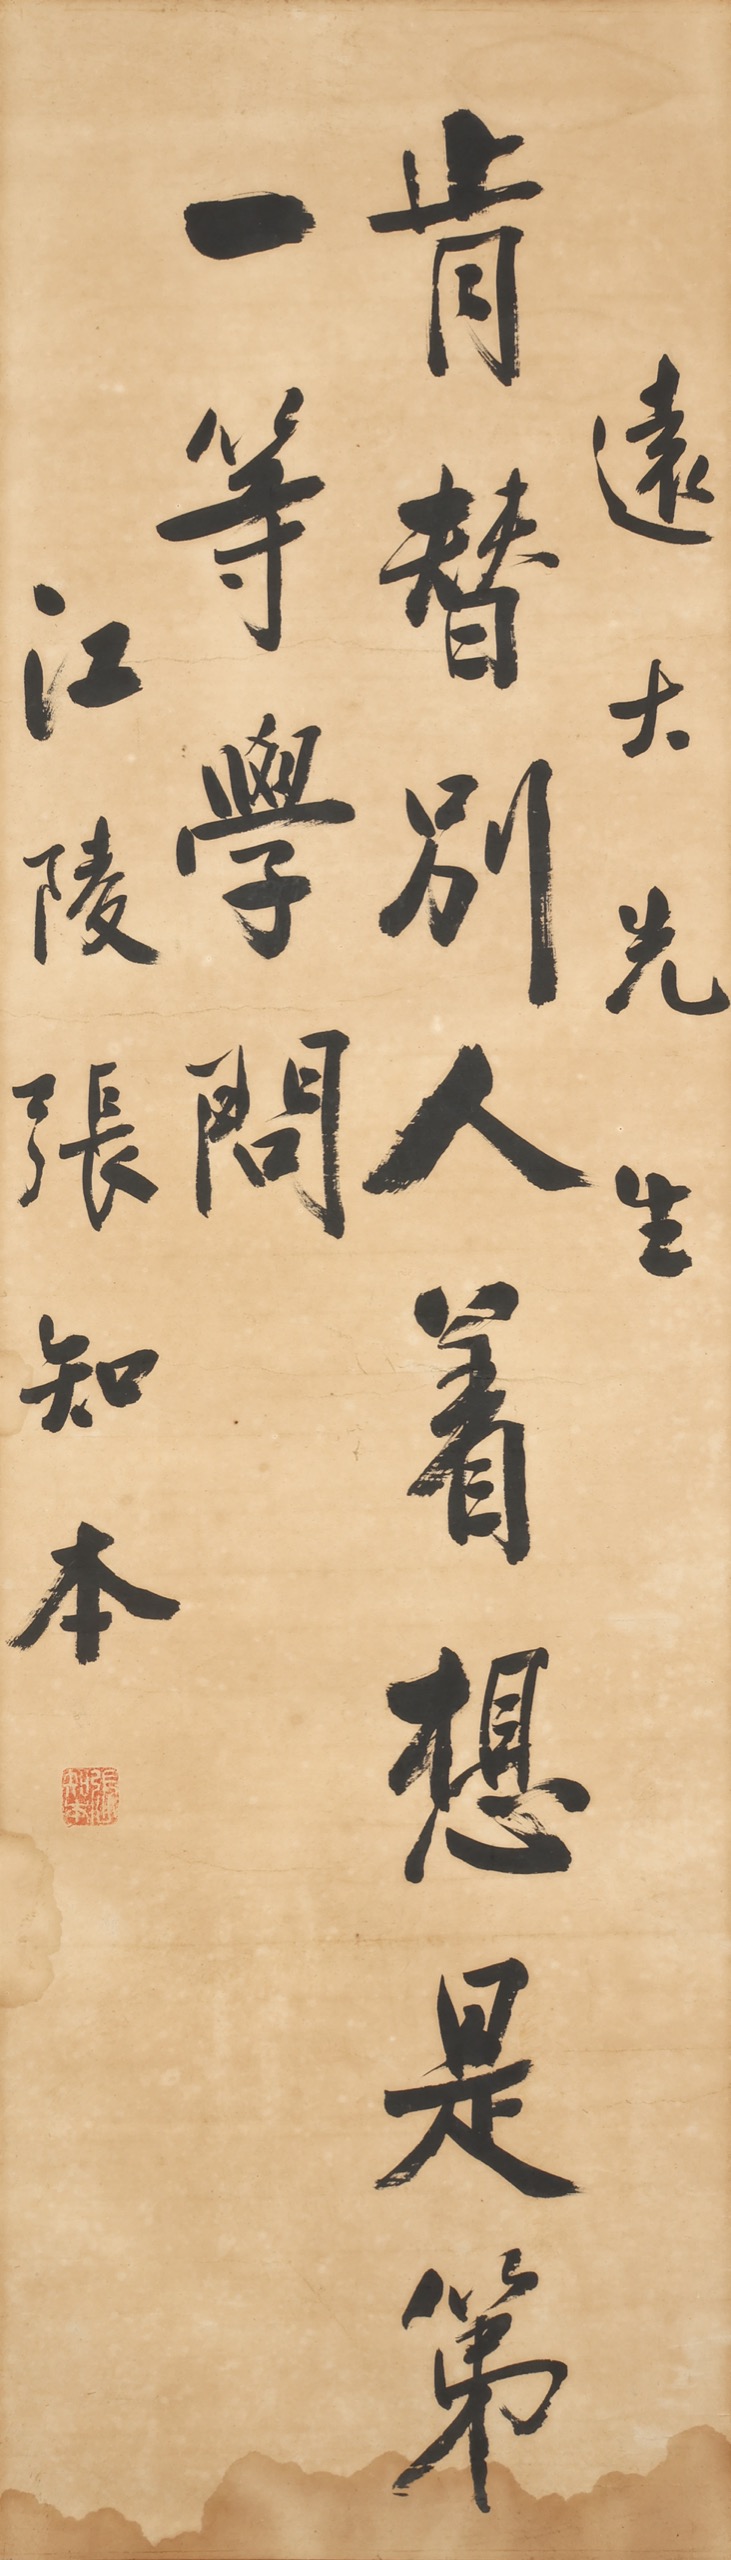 遠大先生
肯替別人着想是第
一等學問
江陵張知本
張知本印